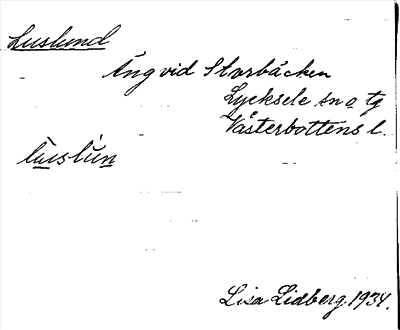 Luslund
Äng vid Storbäcken
Lycksele sn o tg
Västerbottens l.
lùslún
Lisa Lidberg 1934.